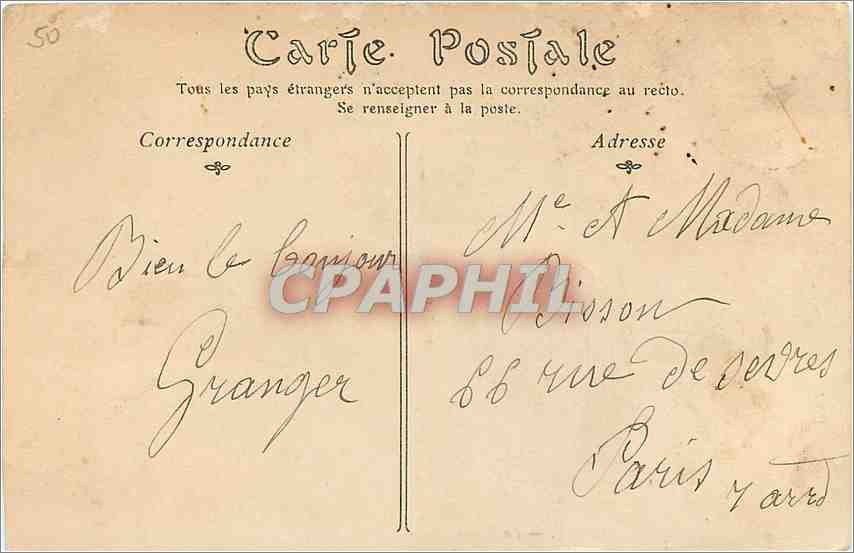 50
Carte Postale
Tous les pays étrangers n'acceptent pas la correspondance au recto.
Se renseigner à la poste.
Correspondance
Adresse
Bien le bonjour
Granger
Me et Madame
Bisson
66 rue de sevres
Paris 7 arrd
CPAPHIL